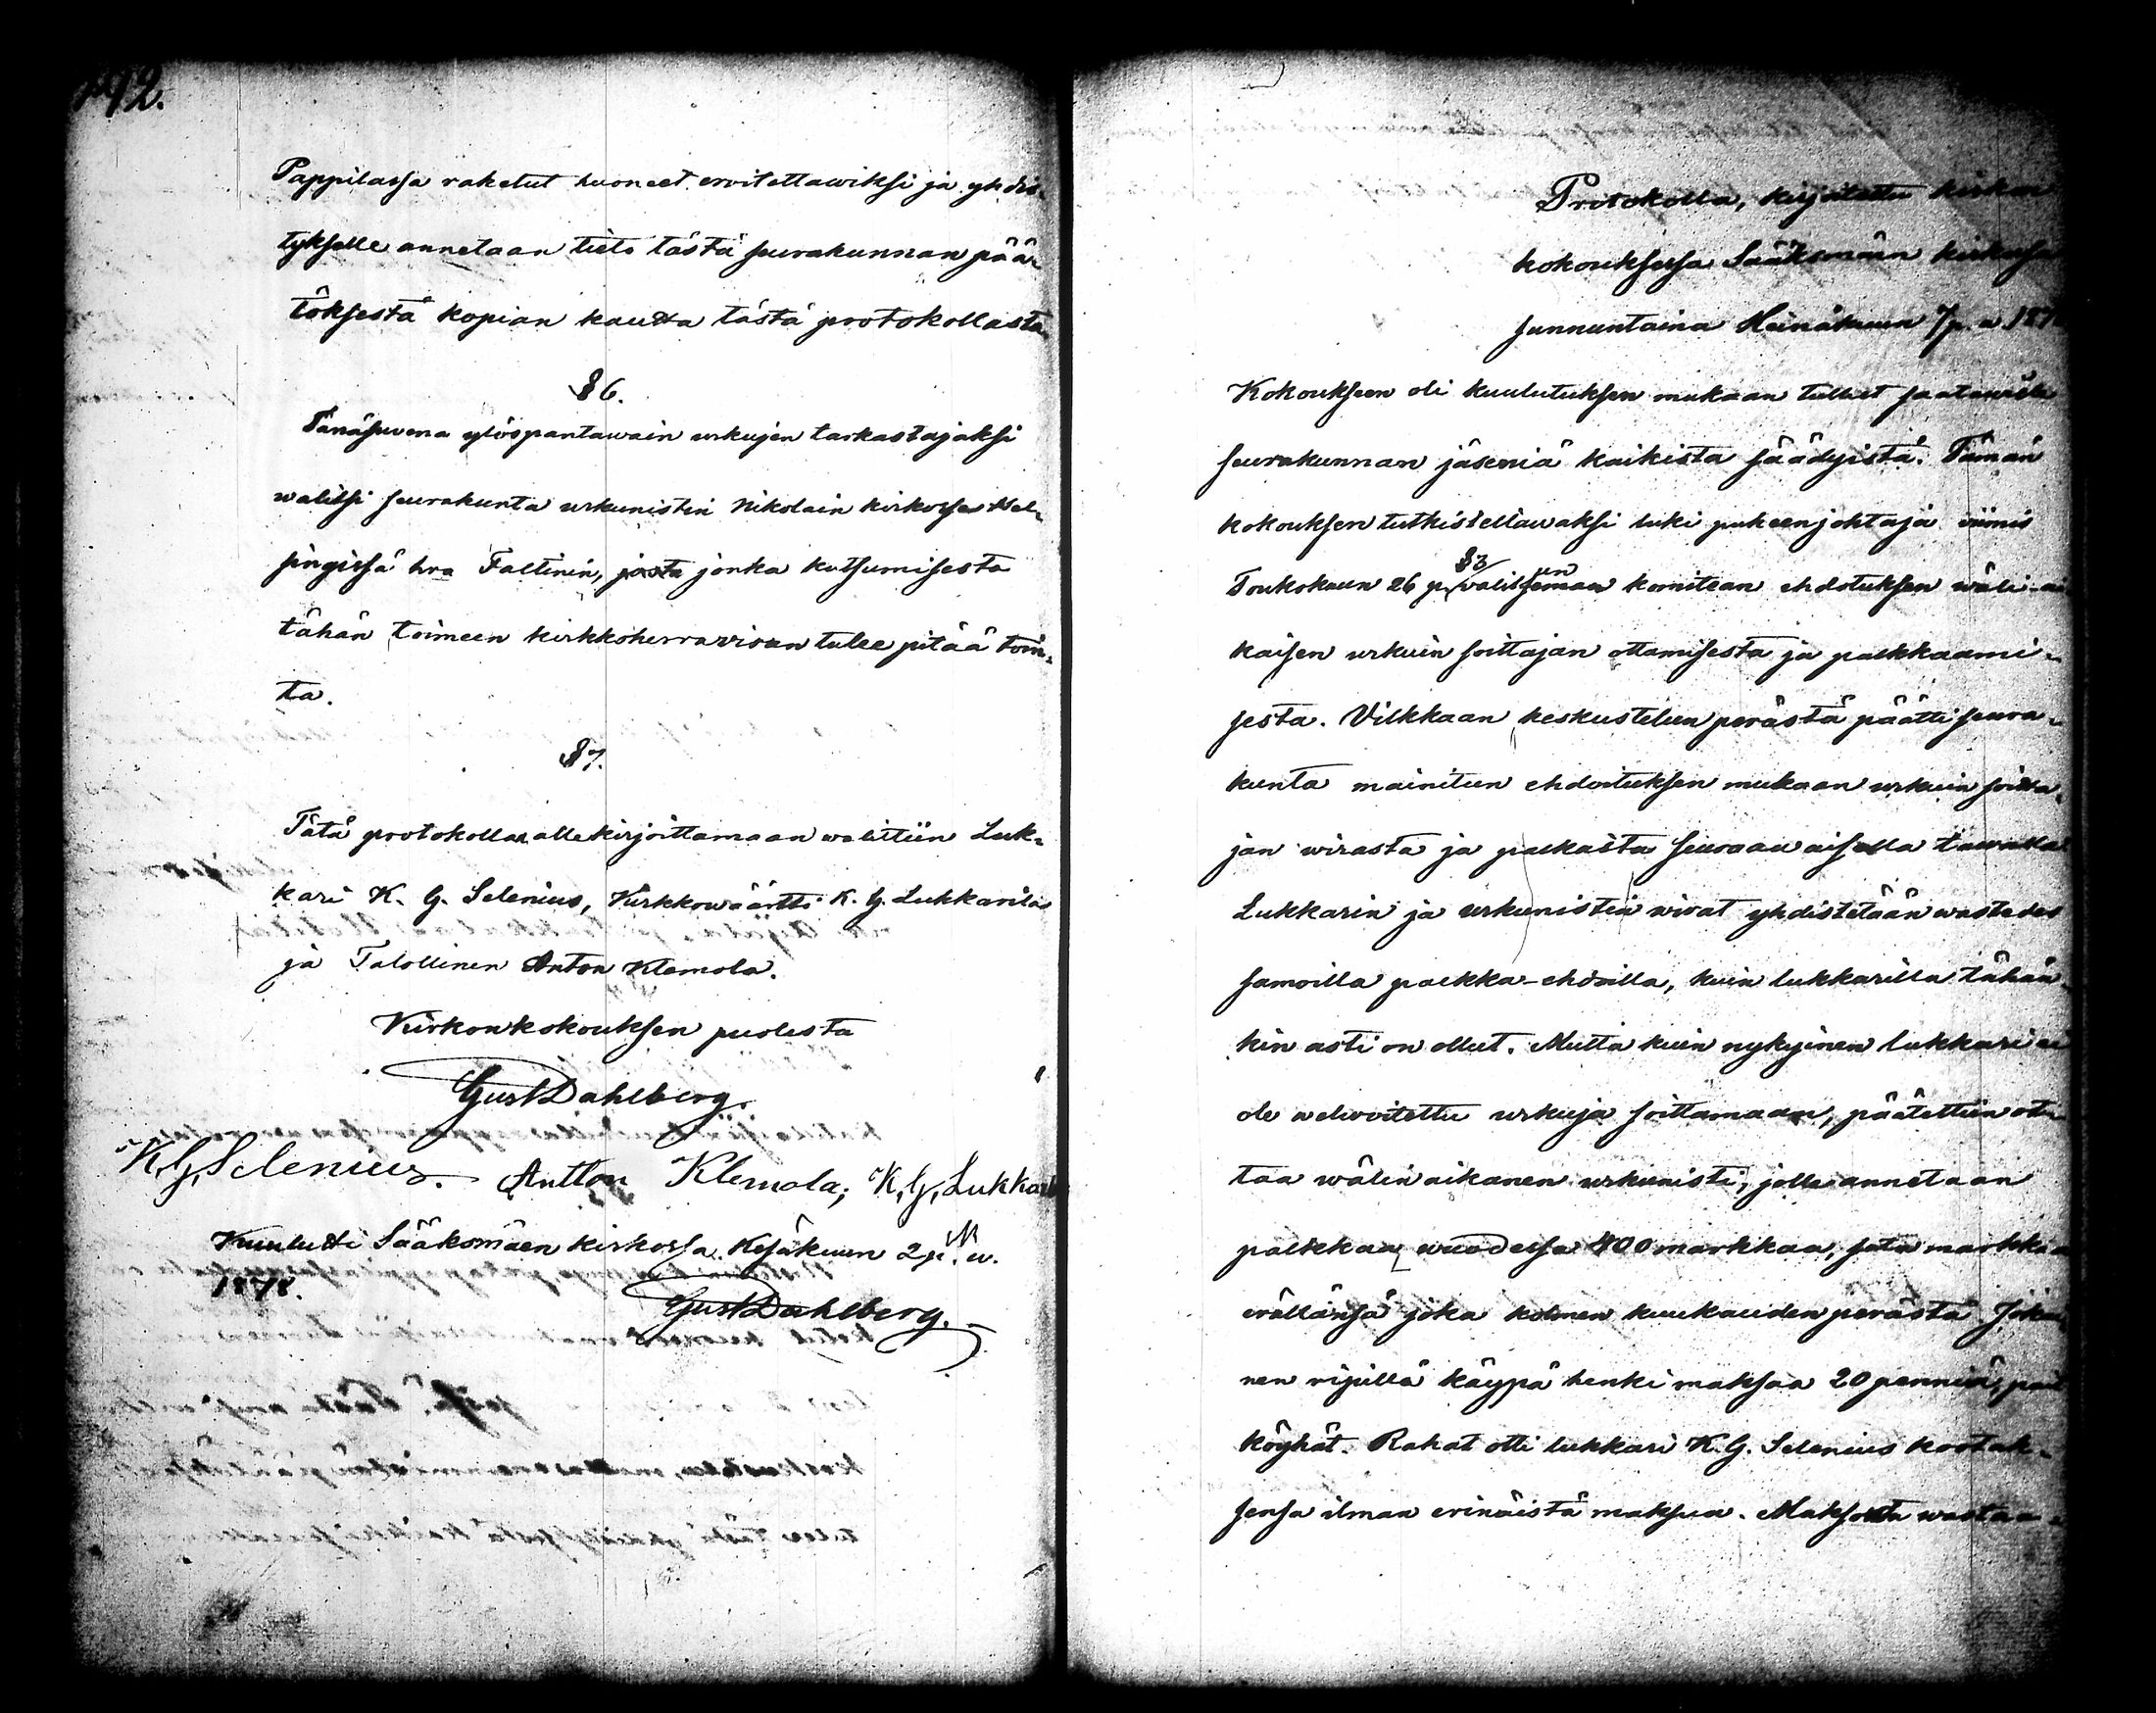 192.
Pappilassa raketut huoneet eroitettawiksi ja yhdis-
tykselle annetaan tieto tästä seurakunnan pää-
töksestä kopian kautta tästä protokollasta.
§ 6.
Tänäsuvena ylöspantawain urkujen tarkastajaksi
walitsi seurakunta urkunistin Nikolain kirkossa Hel-
singissä hra Faltinin, josta jonka kutsumisesta
tähän toimeen kirkkoherraviran tulee pitää toin-
ta.
§ 7.
Tätä protokollaa allekirjoittamaan walittiin Luk-
kari K. G. Selenius, Kirkkowäärtti K. G. Lukkarila
ja Talollinen Anton Klemola.
Kirkonkokouksen puolesta
Gust Dahlberg.
K. G. Selenius. Antton Klemola; K, G, Lukkari
Kuulutti Sääksmäen kirkossa Kesäkuun 2 p. N. u.
1878.
Gust Dahlberg.
Protokolla, kirjoitettu kirkon
kokouksessa Sääksmäen kirkossa
sunnuntaina Heinäkuun 7 p. 187
Kokoukseen oli kuulutuksen mukaan tullut saatawille
seurakunnan jäseniä kaikista säädyistä. Tämän
kokouksen tutkisteltawaksi luki puheenjohtaja viimis
Toukokuun 26 p. § 3 valitseman un komitean ehdotuksen wäli-ai
kaisen urkuin soittajan ottamisesta ja palkkaami-
sesta. Vilkkaan keskustelun perästä päätti seura-
kunta mainitun ehdoituksen mukaan urkuin soitta-
jan wirasta ja palkasta seuraawaisella tawalla
Lukkarin ja urkunistin wirat yhdistetään wastedes
samoilla palkka-ehdoilla, kuin lukkarilla tähän-
kin asti on ollut. Mutta kuin nykyinen lukkari ei
ole welwoitettu urkuja soittamaan, päätettiin ot-
taa wälinaikanen urkunisti, jolle annetaan
palkkaa wuodessa 400 markkaa, sata markkaa
erällänsä joka kolmen kuukauden perästä Joka
nen ripillä käypä henki maksaa 20 penniä, pait
köyhät. Rahat otti lukkari K. G. Selenius kootak-
sensa ilman erinäistä maksua. Maksosta wastaa-